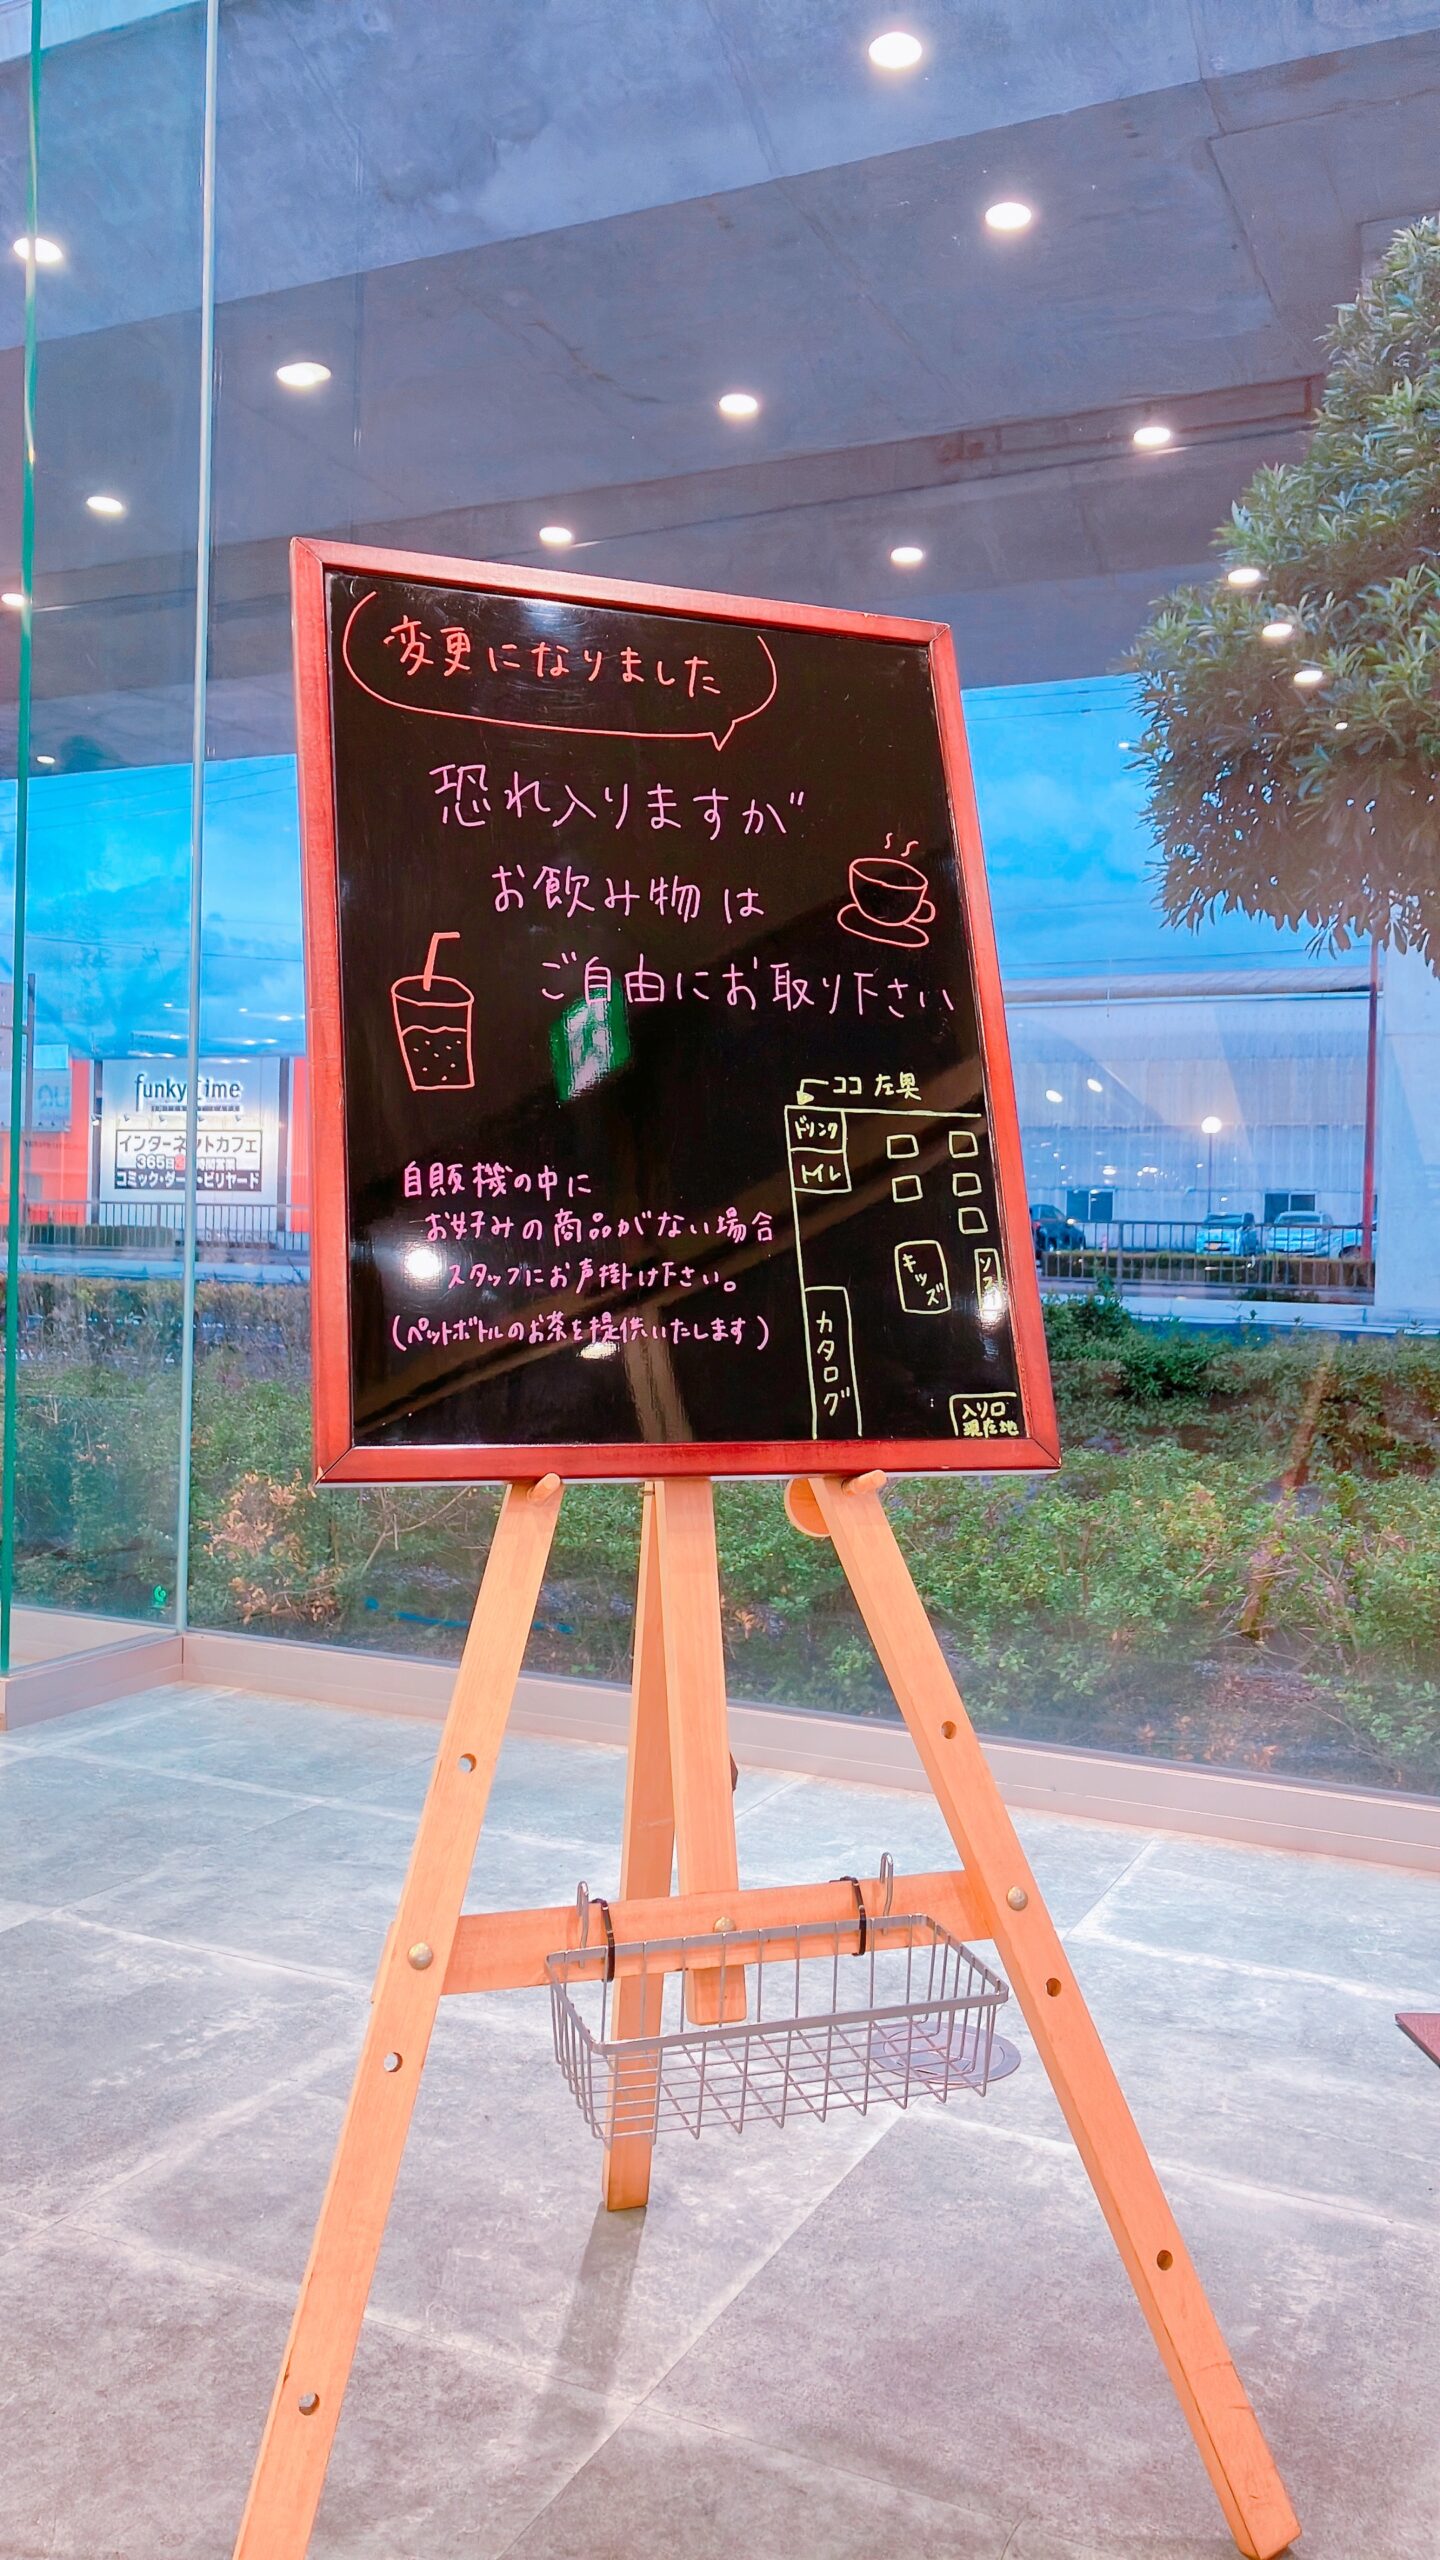 変更になりました
恐れ入りますが
お飲み物は
ご自由にお取り下さい
ココ 左奥
ドリンク
トイレ
自販機の中に
お好みの商品がない場合
スタッフにお声掛け下さい。
(ペットボトルのお茶を提供いたします)
キッズ
ソファ
カタログ
入り口
現在地
funky time
インターネットカフェ
コミック・ダーツ・ビリヤード